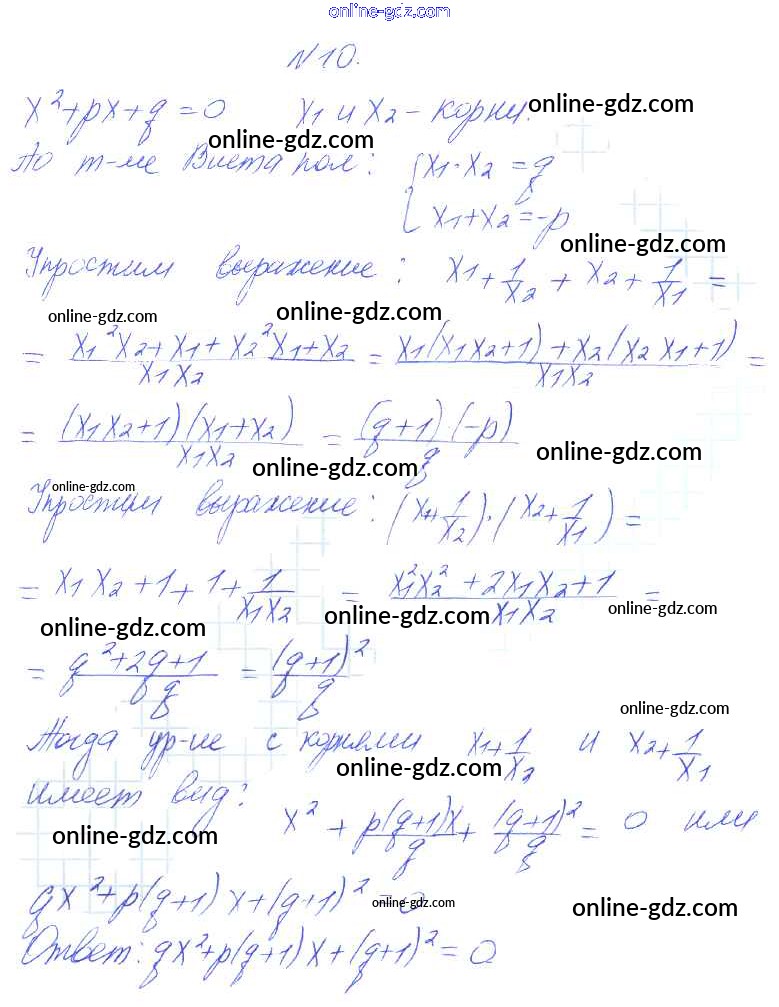 online-gdz.com
N 10.
x²+px+q=0 x₁ и x₂ - корни. online-gdz.com
online-gdz.com
По т-ме Виета пол: { x₁·x₂ = q
x₁+x₂=-p
online-gdz.com
Упростим выражение: x₁+1/x₂ + x₂+1/x₁ =
online-gdz.com online-gdz.com
= (x₁²x₂+x₁+x₂²x₁+x₂)/(x₁x₂) = (x₁(x₁x₂+1)+x₂(x₂x₁+1))/(x₁x₂) =
= ((x₁x₂+1)(x₁+x₂))/(x₁x₂) = ((q+1)·(-p))/q
online-gdz.com online-gdz.com
online-gdz.com
Упростим выражение: (x₁+1/x₂)·(x₂+1/x₁) =
= x₁x₂+1+1+1/(x₁x₂) = (x₁²x₂²+2x₁x₂+1)/(x₁x₂) =
online-gdz.com online-gdz.com online-gdz.com
= (q²+2q+1)/q = (q+1)²/q
online-gdz.com
Тогда ур-ие с корнями x₁+1/x₂ и x₂+1/x₁
online-gdz.com
имеет вид: x² + p(q+1)x/q + (q+1)²/q = 0 или
online-gdz.com
qx²+p(q+1)x+(q+1)²=0
online-gdz.com online-gdz.com
Ответ: qx²+p(q+1)x+(q+1)²=0